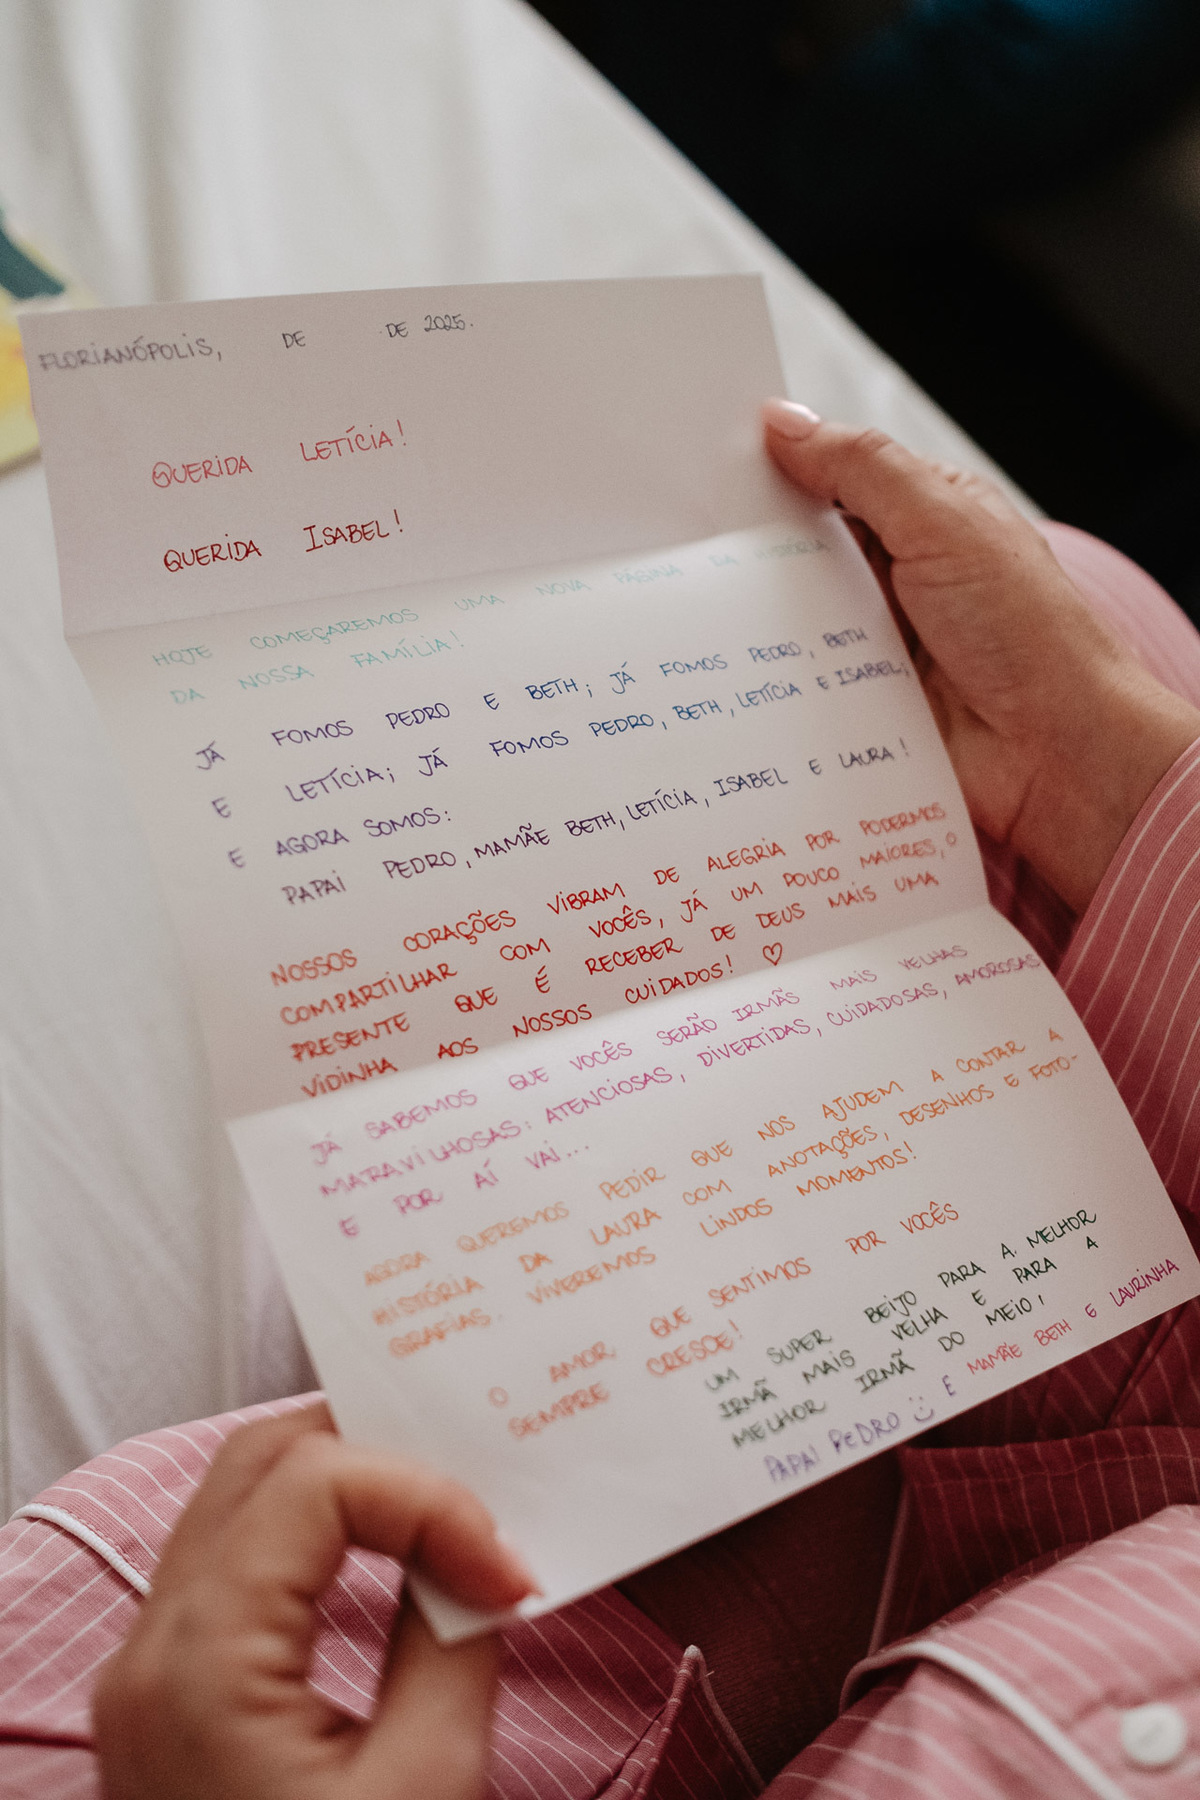 FLORIANÓPOLIS, DE DE 2025.
QUERIDA LETÍCIA!
QUERIDA ISABEL!
HOJE COMEÇAREMOS UMA NOVA PÁGINA DA HISTÓRIA
DA NOSSA FAMÍLIA!
JÁ FOMOS PEDRO E BETH; JÁ FOMOS PEDRO, BETH
E LETÍCIA; JÁ FOMOS PEDRO, BETH, LETÍCIA E ISABEL;
E AGORA SOMOS:
PAPAI PEDRO, MAMÃE BETH, LETÍCIA, ISABEL E LAURA!
NOSSOS CORAÇÕES VIBRAM DE ALEGRIA POR PODERMOS
COMPARTILHAR COM VOCÊS, JÁ UM POUCO MAIORES, O
PRESENTE QUE É RECEBER DE DEUS MAIS UMA
VIDINHA AOS NOSSOS CUIDADOS! ♡
JÁ SABEMOS QUE VOCÊS SERÃO IRMÃS MAIS VELHAS
MARAVILHOSAS: ATENCIOSAS, DIVERTIDAS, CUIDADOSAS, AMOROSAS
E POR AÍ VAI...
AGORA QUEREMOS PEDIR QUE NOS AJUDEM A CONTAR A
HISTÓRIA DA LAURA COM ANOTAÇÕES, DESENHOS E FOTO-
GRAFIAS. VIVEREMOS LINDOS MOMENTOS!
O AMOR QUE SENTIMOS POR VOCÊS
SEMPRE CRESCE!
UM SUPER BEIJO PARA A MELHOR
IRMÃ MAIS VELHA E PARA A
MELHOR IRMÃ DO MEIO,
PAPAI PEDRO E MAMÃE BETH E LAURINHA